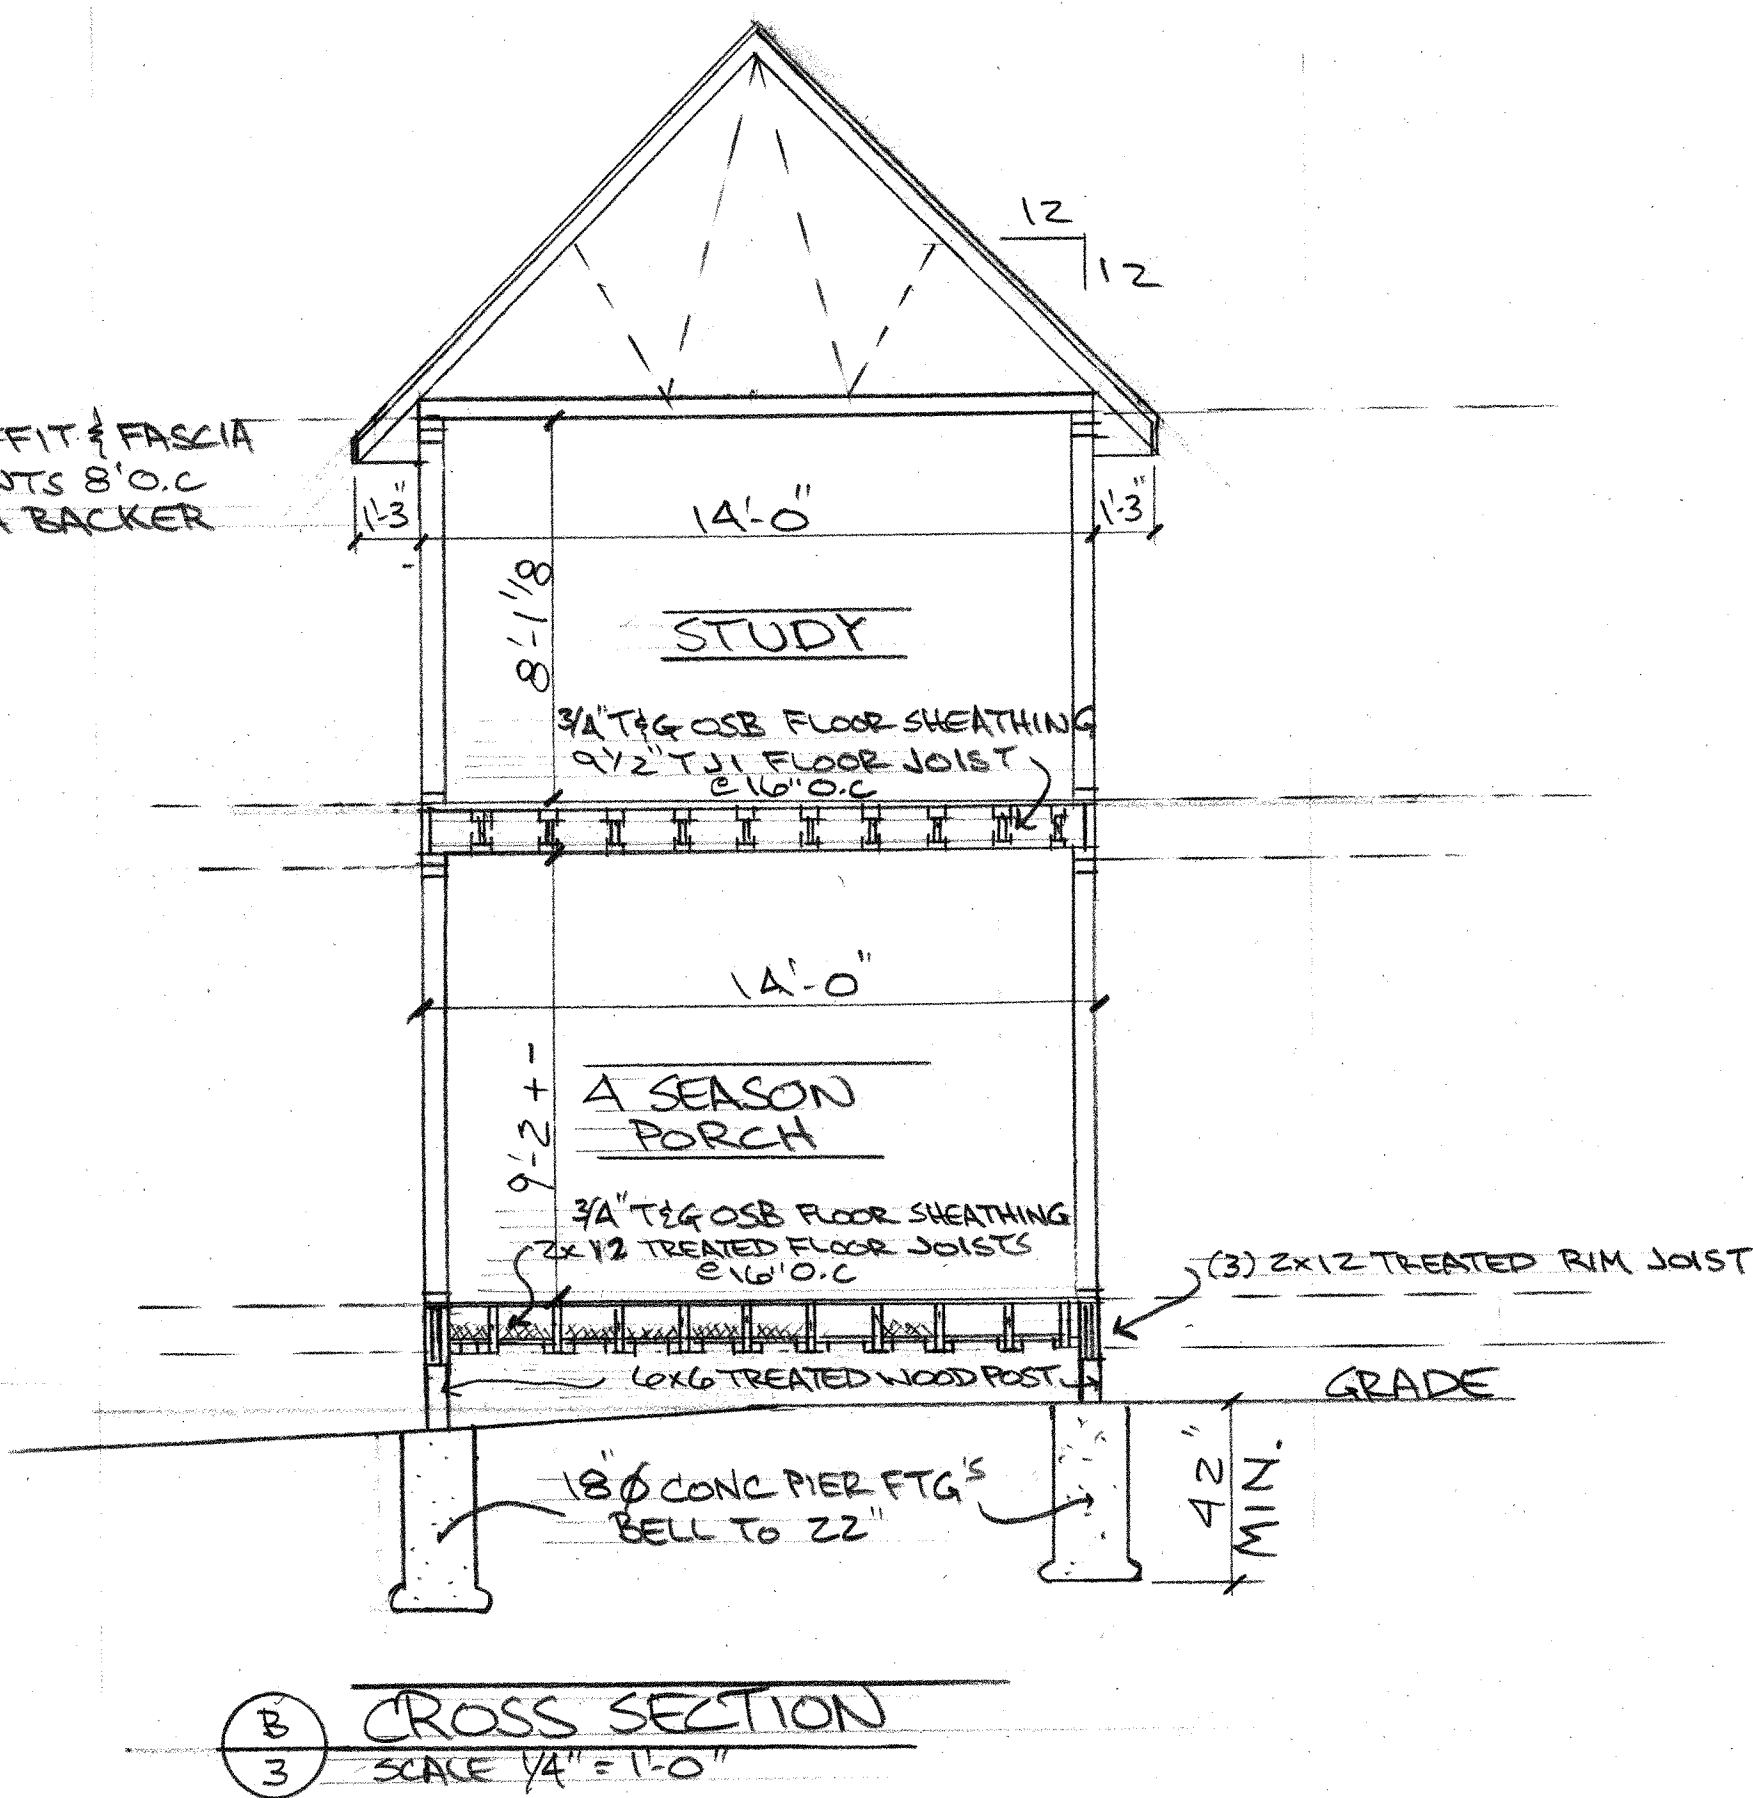 12
12
FFIT & FASCIA
NTS 8'O.C
A BACKER
1'-3"
14'-0"
1'-3"
8'-1 1/8
STUDY
3/4" T&G OSB FLOOR SHEATHING
9 1/2" TJI FLOOR JOIST
@ 16" O.C
14'-0"
9'-2 + -
4 SEASON
PORCH
3/4" T&G OSB FLOOR SHEATHING
2x12 TREATED FLOOR JOISTS
@ 16" O.C
(3) 2x12 TREATED RIM JOIST
6x6 TREATED WOOD POST
GRADE
18" Ø CONC PIER FTG'S
BELL TO 22"
42"
MIN.
B
3
CROSS SECTION
SCALE 1/4" = 1'-0"